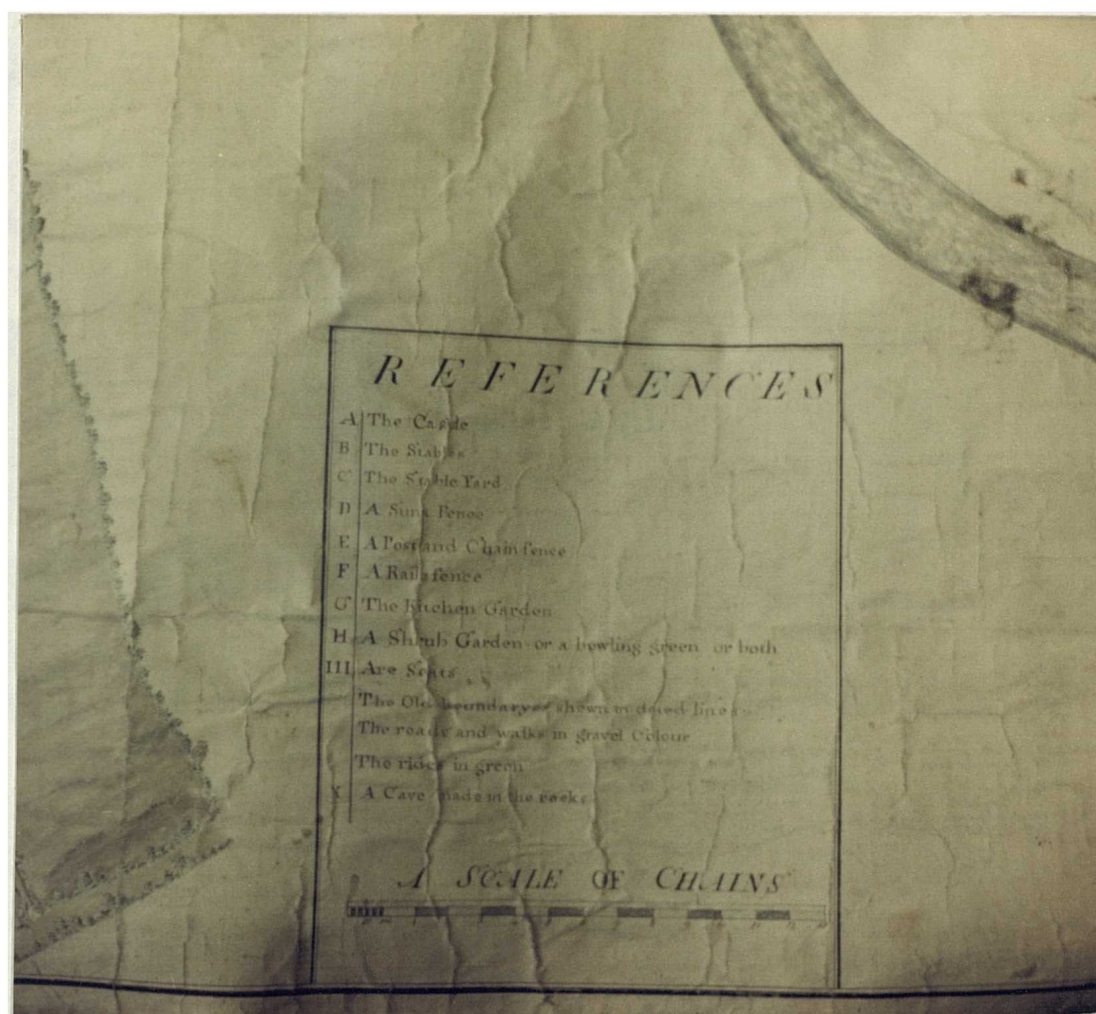 REFERENCES
A The Castle
B The Stables
C The Stable Yard
D A Sunk Fence
E A Post and Chain fence
F A Rail fence
G The Kitchen Garden
H A Shrub Garden or a bowling green or both
III Are Seats
The Old boundaryes shewn in doted lines
The roads and walks in gravel Colour
The rides in green
A Cave made in the rocks
A SCALE OF CHAINS